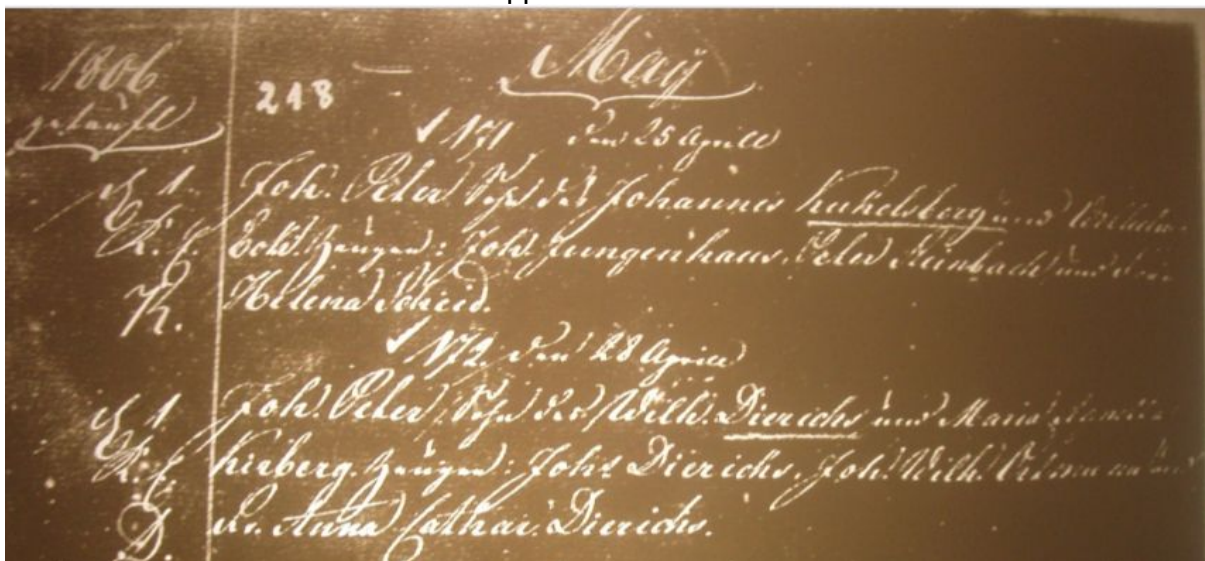 1806
getauft
218
May
171 den 25 Aprill
E 1. Joh. Peter Sohn des Johannes Kukelsberg und
K. E. Zeugen: Joh. Jungenhaus, Peter Steinbach und
K. Helena Scheid.
172. den 28 Aprill
E 1. Joh. Peter, Sohn des Wilh. Dierichs und Maria
K. E. Kirberg. Zeugen: Johs Dierichs, Joh. Wilh. und
D. Anna Cathar. Dierichs.